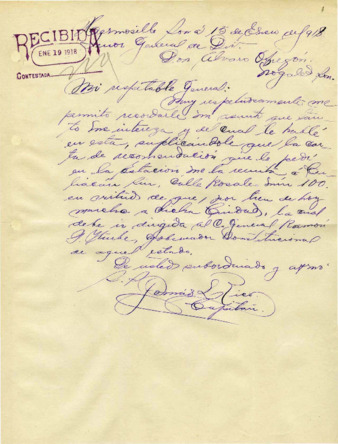 Hermosillo Son. a 15 de Enero de 1918.
RECIBIDA
ENE 19 1918
CONTESTADA
Señor General de Div.
Don Alvaro Obregón.
Nogales, Son.
Mi respetable General:
Muy respetuosamente me
permito recordarle mi asunto que tan-
to me interesa y del cual le hablé
en esta, suplicandole que la car-
ta de recomendación que le pedí
en la estación me la remita á Cu-
liacán Sin. Calle Rosales núm 100.
en virtud de que, por tren de hoy
marcho a dicha Ciudad, la cual
debe ir dirigida al C. General Ramón
F. Iturbe, Gobernador Constitucional
de aquel estado.
De usted subordinado y affmo
S. S.
Tomás L. Rico.
Capitán.